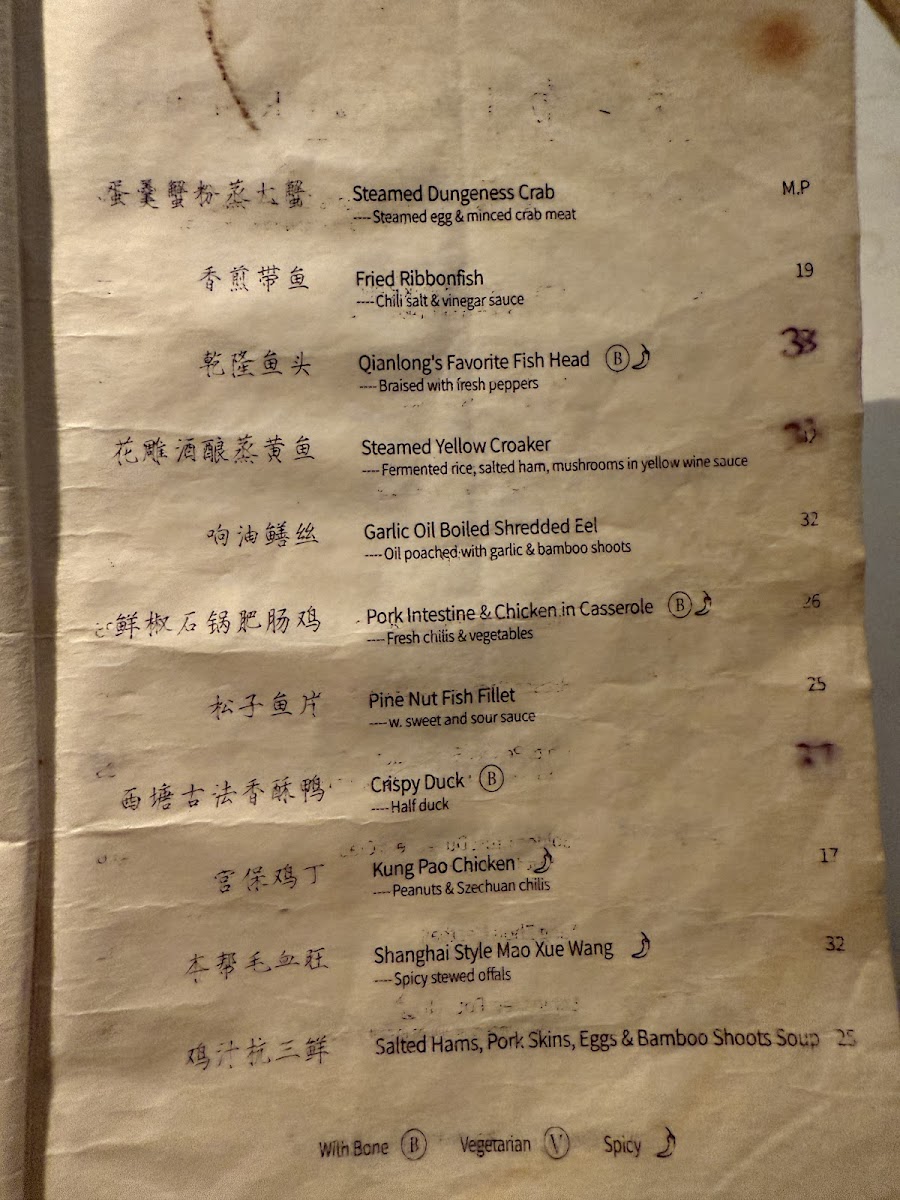 蛋羹蟹粉蒸大蟹 Steamed Dungeness Crab M.P
----Steamed egg & minced crab meat
香煎带鱼 Fried Ribbonfish 19
----Chili salt & vinegar sauce
乾隆鱼头 Qianlong's Favorite Fish Head B 38
----Braised with fresh peppers
花雕酒酿蒸黄鱼 Steamed Yellow Croaker
----Fermented rice, salted ham, mushrooms in yellow wine sauce
响油鳝丝 Garlic Oil Boiled Shredded Eel 32
----Oil poached with garlic & bamboo shoots
鲜椒石锅肥肠鸡 Pork Intestine & Chicken in Casserole B 26
----Fresh chilis & vegetables
松子鱼片 Pine Nut Fish Fillet 25
----w. sweet and sour sauce
西塘古法香酥鸭 Crispy Duck B
----Half duck
宫保鸡丁 Kung Pao Chicken 17
----Peanuts & Szechuan chilis
本帮毛血旺 Shanghai Style Mao Xue Wang 32
----Spicy stewed offals
鸡汁杭三鲜 Salted Hams, Pork Skins, Eggs & Bamboo Shoots Soup 25
With Bone B Vegetarian V Spicy